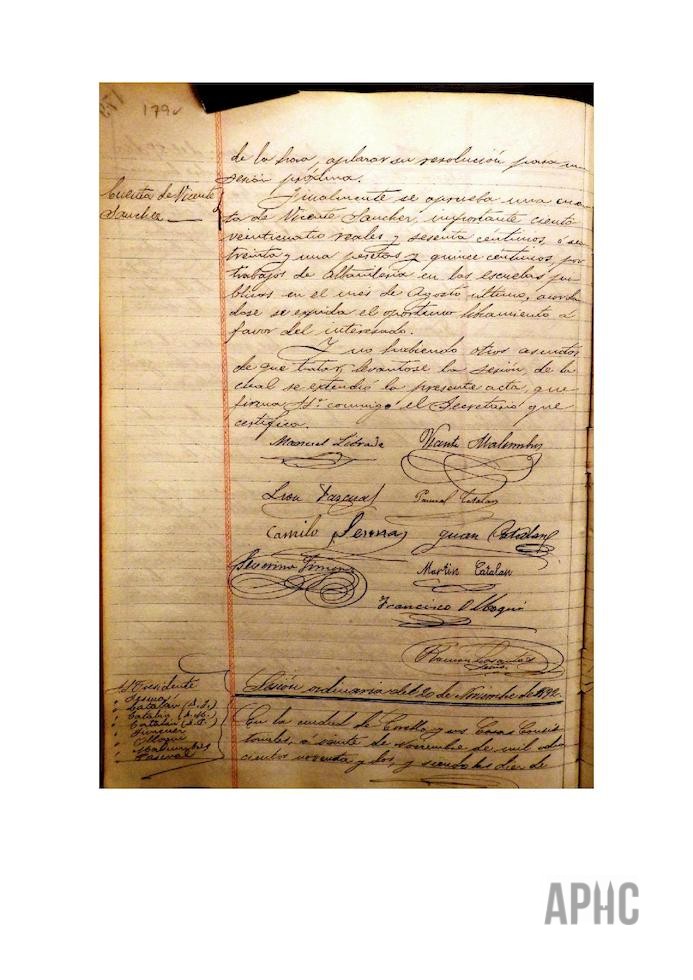 179v
de la hora, aplazar su resolución para un
sesión próxima.
Cuenta de Vicente
Sanchez
Finalmente se aprueba una cuen
ta de Vicente Sanchez, importante ciento
veinticuatro reales y sesenta céntimos, ó sea
treinta y una pesetas y quince céntimos, por
trabajos de Albañileria en las escuelas pu
blicas en el mes de Agosto último, acordan
dose se expida el oportuno libramiento á
favor del interesado.
Y no habiendo otros asuntos
de que tratar, levantose la sesión, de la
cual se extendió la presente acta, que
firma conmigo el Secretario que
certifico.
Manuel Vicente Malumbres
Leon Pascual Pascual Catalan
Camilo Sesma Juan Catalan
Severino Martin Catalan
Francisco Olloqui
Ramon
Srio.
Sr. Presidente
" Sesma
" Catalán (D. J.)
" Catalán (D. M.)
" Catalán (D. P.)
" Olloqui
" Malumbres
" Pascual
Sesión ordinaria del 20 de Noviembre de 1892.
En la ciudad de Corella y sus Casas Consis
toriales, á veinte de noviembre de mil ocho
cientos noventa y dos, y siendo las diez de
APHC